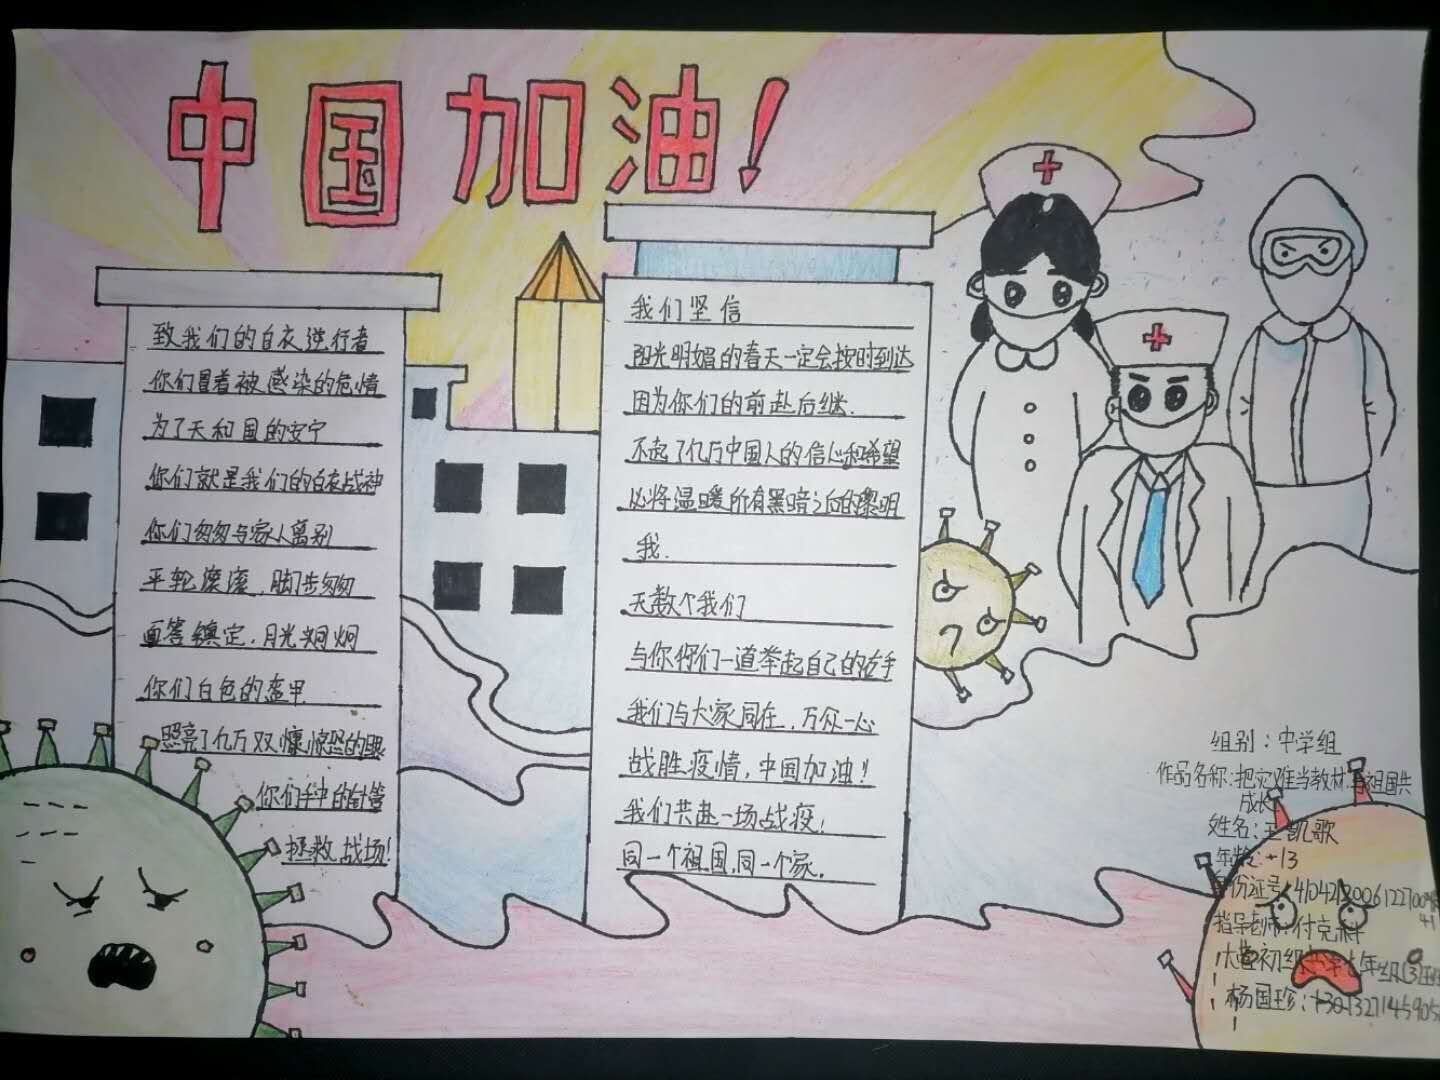 中国加油！
致我们的白衣逆行者
你们冒着被感染的危情
为了天和国的安宁
你们就是我们的白衣战神
你们匆匆与家人离别
平轮滚滚，脚步匆匆
面容镇定，月光炯炯
你们白色的盔甲
照亮了亿万双慷惊恐的眼
你们手中的针管
拯救战场！
我们坚信
阳光明媚的春天一定会按时到达
因为你们的前赴后继.
不起了亿万中国人的信心和希望
必将温暖所有黑暗之后的黎明
我.
无数个我们
与你你们一道举起自己的右手
我们与大家同在，万众一心
战胜疫情，中国加油！
我们共赴一场战疫，
同一个祖国，同一个家.
组别：中学组
作品名称：把灾难当教材，与祖国共
成长
姓名：王凯歌
年龄：13
身份证号：
指导老师：付克科
初级中学七年级
杨国珍：